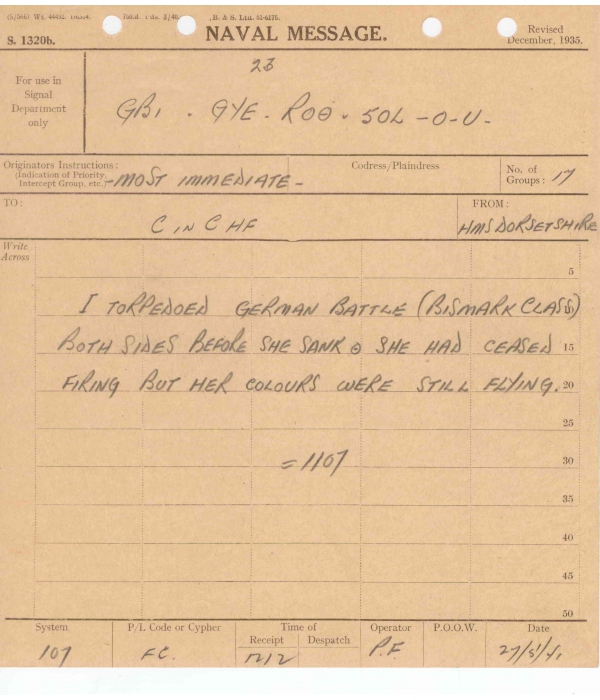 B. & S. Ltd. 51-6175.
S. 1320b.
NAVAL MESSAGE.
Revised
December, 1935.
For use in
Signal
Department
only
23
GBI . GYE . ROΘ . 5OL - O - U -
Originators Instructions:
(Indication of Priority,
Intercept Group, etc.)
- MOST IMMEDIATE -
Codress/Plaindress
No. of
Groups: 17
TO:
C IN C HF
FROM:
HMS DORSETSHIRE
Write
Across
5
I TORPEDOED GERMAN BATTLE (BISMARK CLASS)
BOTH SIDES BEFORE SHE SANK ⊙ SHE HAD CEASED 15
FIRING BUT HER COLOURS WERE STILL FLYING. 20
25
= 1107
30
35
40
45
50
System P/L Code or Cypher Time of Operator P.O.O.W. Date
Receipt Despatch
107 FC. 1212 P.F. 27/5/41